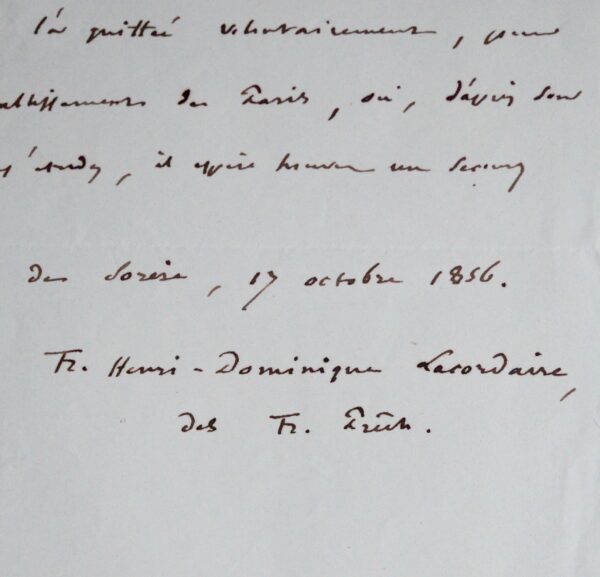 l'a quittée volontairement, pour
établissements de Paris, où, d'après son
d'études, il espère trouver un secours
de Sorèze, 17 octobre 1856.
Fr. Henri-Dominique Lacordaire,
des Fr. Prêch.